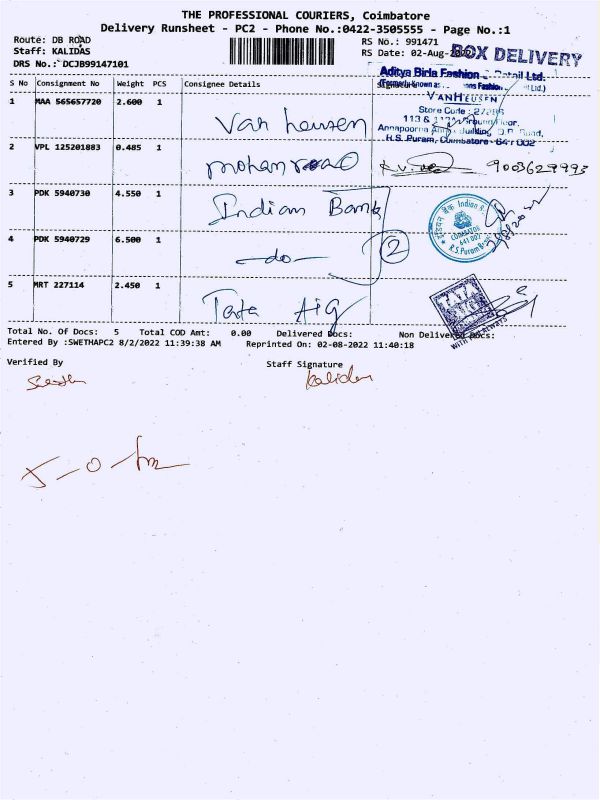 THE PROFESSIONAL COURIERS, Coimbatore
Delivery Runsheet - PC2 - Phone No.:0422-3505555 - Page No.:1
Route: DB ROAD
RS No.: 991471
Staff: KALIDAS
RS Date: 02-Aug-2022
BOX DELIVERY
DRS No.: DCJB99147101
S No Consignment No Weight PCS Consignee Details Signature
Aditya Birla Fashion Retail Ltd.
VAN HEUSEN
Store Code :
1 MAA 565657720 2.600 1 Van heusen
2 VPL 125201883 0.485 1 9003629993
3 PDK 5940730 4.550 1 Indian Bank
COIMBATORE
641 002
2
4 PDK 5940729 6.500 1 -do-
5 MRT 227114 2.450 1 Tata Aig
TATA
WITH YOU ALWAYS
Total No. Of Docs: 5 Total COD Amt: 0.00 Delivered Docs: Non Delivered Docs:
Entered By :SWETHAPC2 8/2/2022 11:39:38 AM Reprinted On: 02-08-2022 11:40:18
Verified By Staff Signature
Kalidas